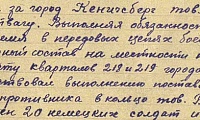 за город Кенигсберг тов.
Выполняя обязанност
в передовых цепях бое
состав на местности
ту кварталов 218 и 219 городо
ствовал выполнению постав
противника в кольцо тов.
ен 20 немецких солдат и